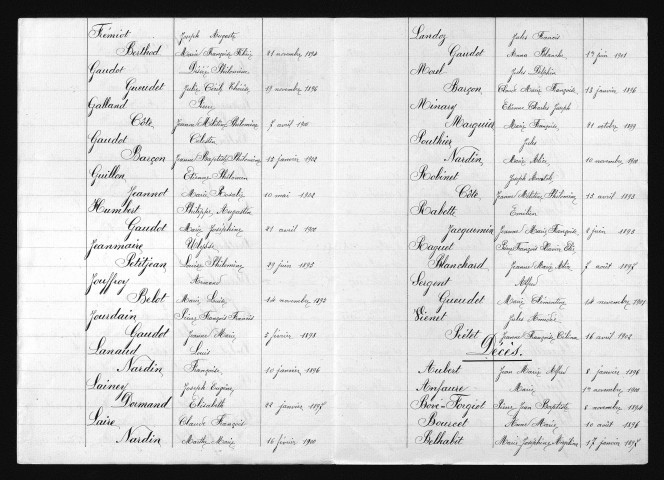 Frémiot Joseph Auguste
Berthod Marie Françoise 21 novembre 1894
Gaudot Désiré Philomin
Gueudet Julie Cécile 19 novembre 1896
Galland Pierre
Côte Jeanne Philomène 7 avril 1901
Gaudot Célestin
Barçon Jeanne Baptiste Philomène 12 janvier 1902
Guillon Etienne Philomin
Jeannot Marie Rosalie 10 mai 1902
Humbert Philippe Augustin
Gaudot Marie Joséphine 21 avril 1900
Jeanmaire Ulysse
Petitjean Louise Philomène 29 juin 1893
Jouffroy Armand
Belot Marie Louise 14 novembre 1892
Jourdain Pierre François Francis
Gaudot Jeanne Marie 2 février 1898
Lanaud Louis
Nardin Françoise 10 janvier 1896
Lainey Joseph Eugène
Dormand Elisabeth 22 janvier 1895
Laire Claude François
Nardin Marthe Marie 16 février 1900
Landoz Jules Francis
Gaudot Anna Blanche 1er juin 1901
Jules Delphin
Barçon Claude Marie Françoise 13 janvier 1896
Minary Etienne Charles Joseph
Marguier Marie Françoise 21 octobre 1899
Pouthier Jules
Nardin Marie 10 novembre 1900
Robinet Joseph
Côte Jeanne Philomène 13 avril 1893
Rabette Emilien
Jacquemin Jeanne Marie Françoise 8 juin 1893
Raguet Pierre François Xavier
Blanchard Jeanne Marie 7 août 1895
Sergent Alfred
Gueudet Marie Clémentine 24 novembre 1901
Vienet Jules
Petet Jeanne Françoise 16 avril 1902
Décès.
Aubert Jean Marie Alfred 8 janvier 1896
Anfaure Marie 1er novembre 1900
Bôve-Forgiot Pierre Jean Baptiste 8 novembre 1894
Bourcet Anne Marie 10 août 1896
Belhabit Marie Joséphine 17 janvier 1895